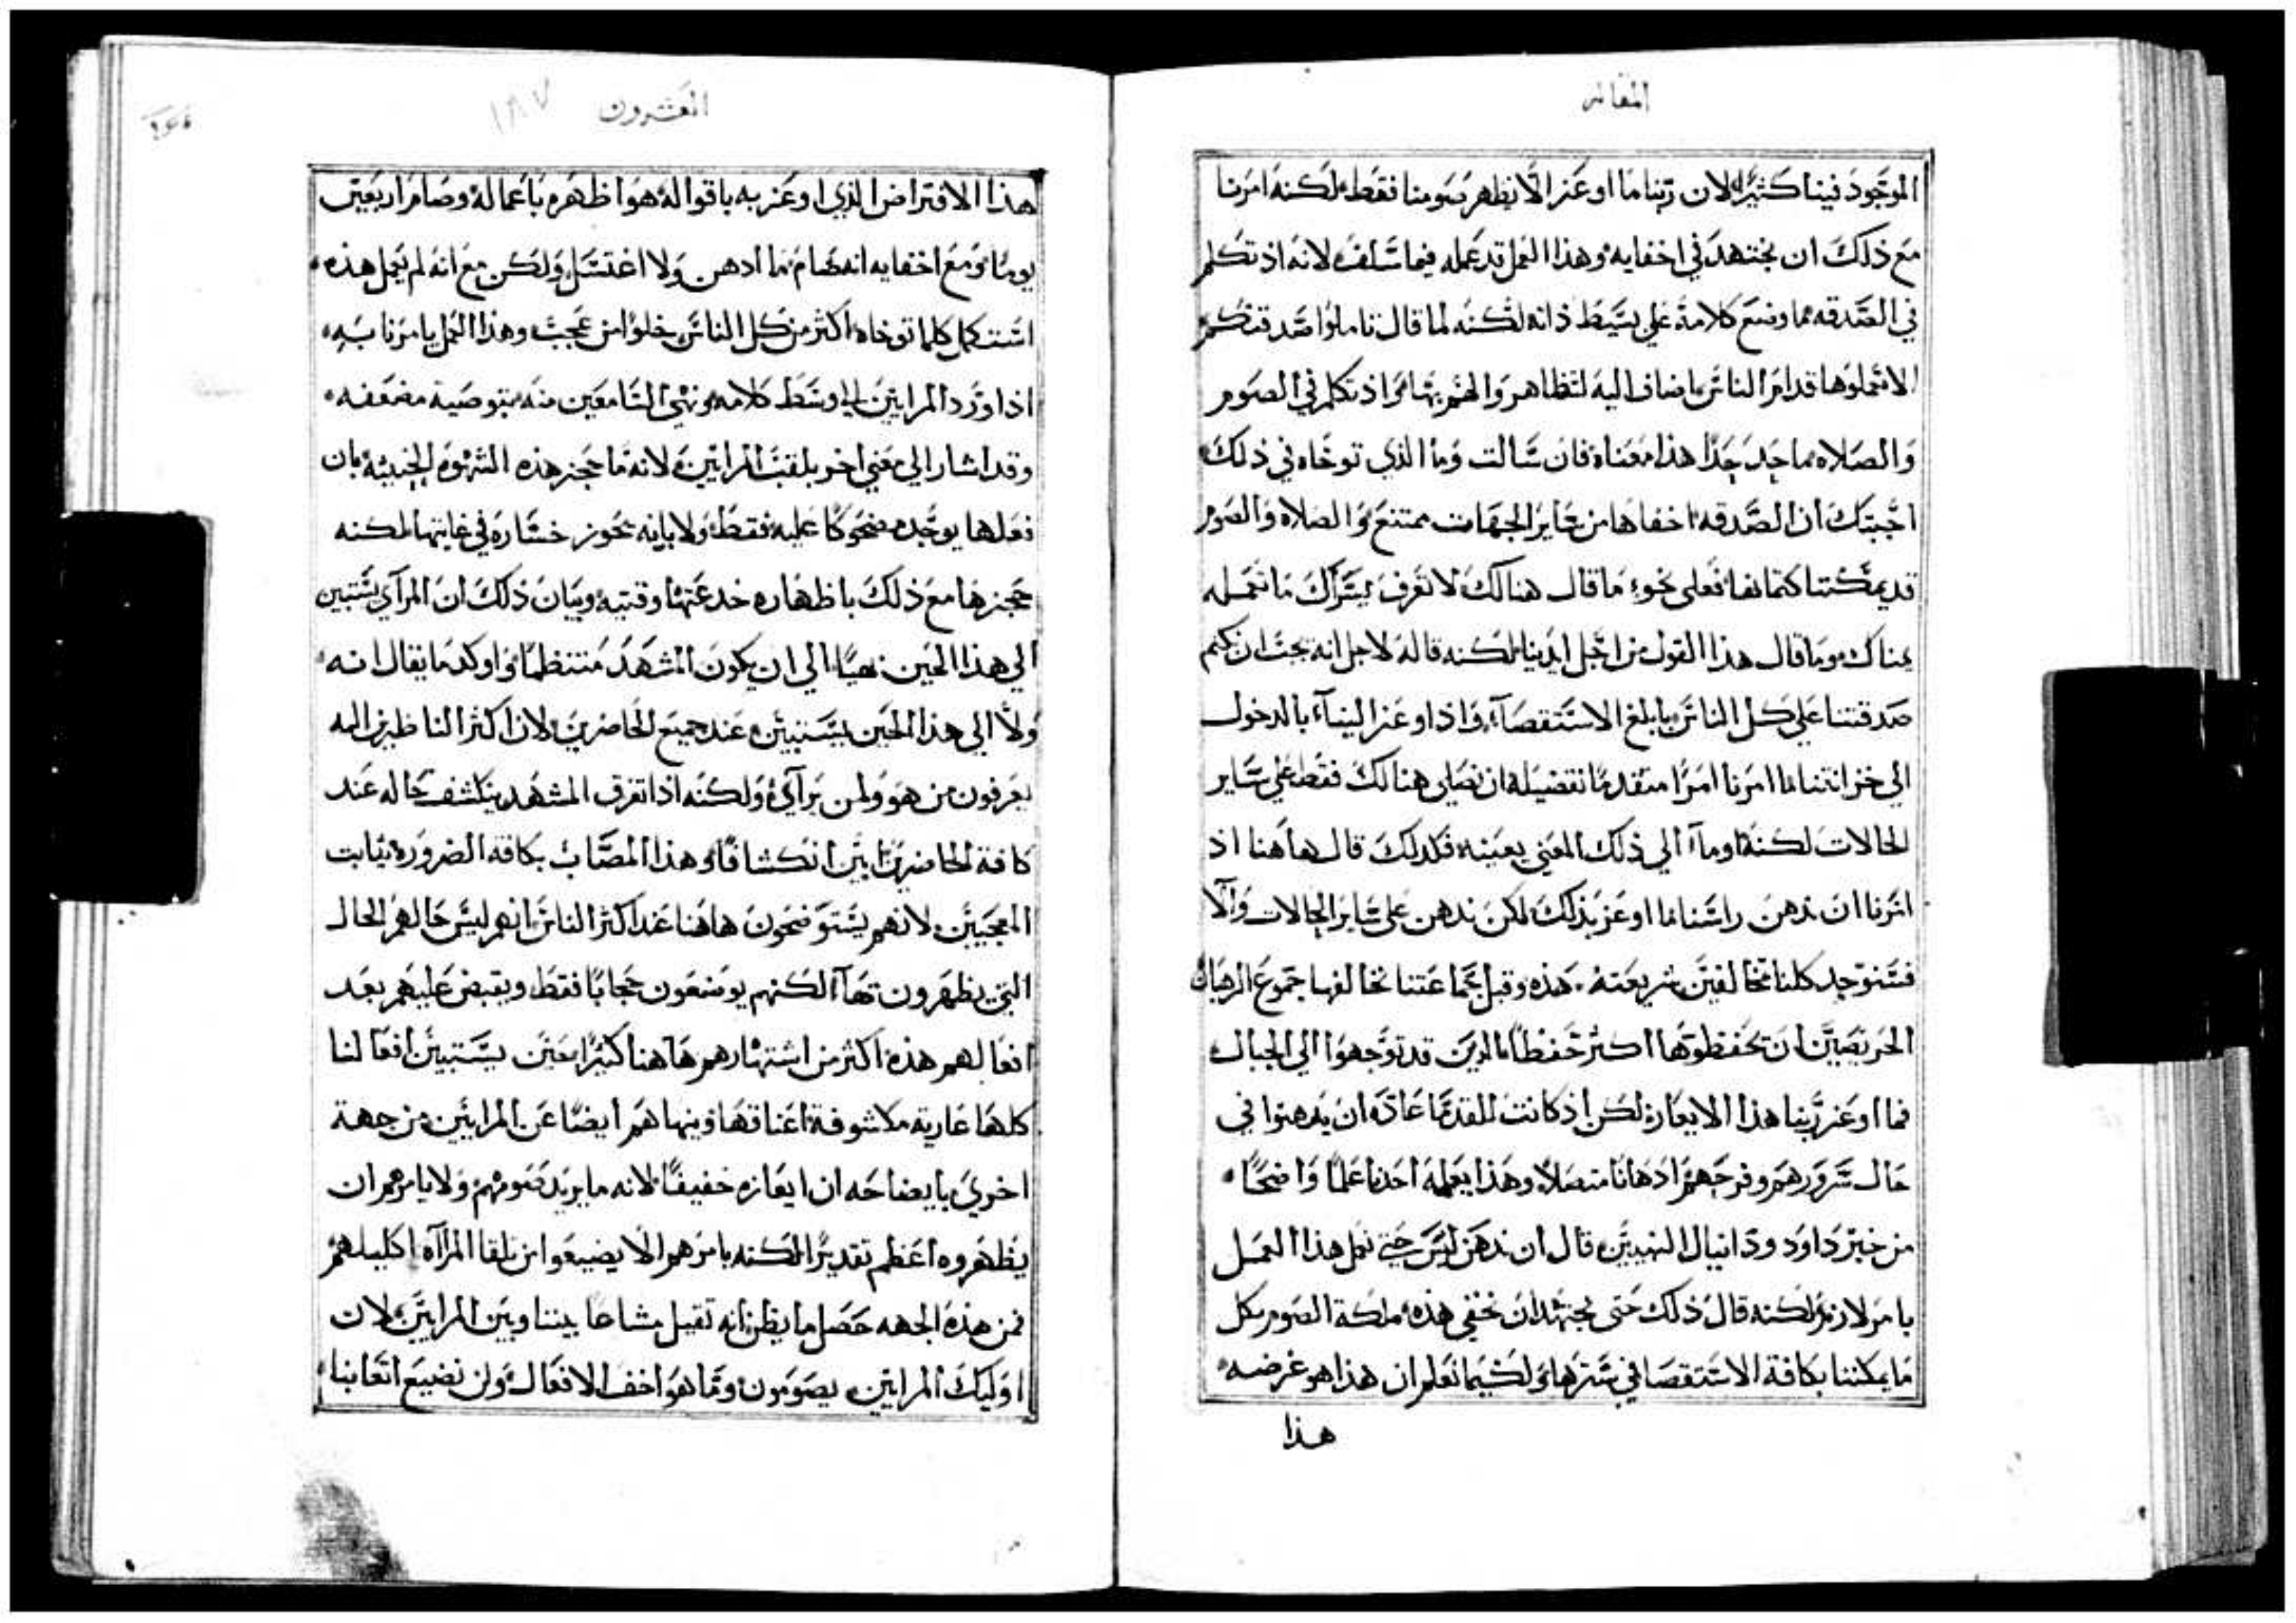 المقاله
الموجود فينا كثيرًا لان ربنا ما اوعز الا نظهر صومنا فقط لكنه امرنا
مع ذلك ان نجتهد في اخفايه وهذا العمل قد عمله فيما سلف لانه اذ تكلم
في الصدقه مما وضع كلامه على بسيط ذاته لكنه لما قال تاملوا صدقتكم
الا تعملوها قدام الناس اضاف اليه لتظاهروا لهم بها واذ تكلم في الصوم
والصلاه ما حدد حدًا هذا معناه فان سالت وما الذي توخاه في ذلك
اجبتك ان الصدقه اخفاها من ساير الجهات ممتنع والصلاه والصوم
قد يمكننا كتمانها فعلى نحو ما قال هنالك لا تعرف يسراك ما تعمله
يمناك وما قال هذا القول من اجل ايدينا لكنه قاله لاجل انه يجب ان نكتم
صدقتنا على كل الناس بابلغ الاستقصآء واذا اوعز الينا بالدخول
الى خزانتنا ما امرنا امرًا متقدمًا تفضيله ان نصلى هنالك فقط على ساير
الحالات لكنه اومآ الى ذلك المعنى بعينه فكذلك قال هاهنا اذ
امرنا ان ندهن راسنا ما اوعز بذلك لكن ندهن على ساير الحالات والا
فسنوجد كلنا مخالفين شريعته هذه وقبل جماعتنا مخالفها جموع الرهبان
الحريصين ان يحفظوها اكثر حفظًا الذين قد توجهوا الى الجبال
فما اوعز ربنا هذا الايعاز لكن اذ كانت للقدما عاده ان يدهنوا في
حال سرورهم وفرحهم ادهانًا متصلاً وهذا يعلمه احدنا علمًا واضحًا
من خبر داود ودانيال النبيين قال ان ندهن ليس حتى نعمل هذا العمل
بامر لازم لكنه قال ذلك حتى نجتهد ان نخفي هذه ملكة الصوم بكل
ما يمكننا بكافة الاستقصا في سترها ولكيما تعلم ان هذا هو غرضه
هذا
العشرون
١٨٧
هذا الافتراض الذي اوعز به باقواله هو اظهره باعماله وصام اربعين
يومًا ومع اخفايه انه صام ما ادهن ولا اغتسل ولكن مع انه لم يعمل هذه
استكمل كلما توخاه اكثر من كل الناس خلوًا من عجب وهذا العمل يامرنا به
اذا ورد المرايين الى وسط كلامه ونهى السامعين منه بتوصية مضعفه
وقد اشار الى معنى اخر بلقب المرايين لانه ما حجز هذه الشهوه الخبيثه بان
فعلها يوجد مضحوكًا عليه فقط ولا بانه يحوز خساره في غايتها لكنه
حجزها مع ذلك باظهاره خدعتها وقتيه وبيان ذلك ان المرآي يستبين
الى هذا الحين بهيًا الى ان يكون المشهد منتظمًا واوكد ما يقال انه
ولا الى هذا الحين يستبين عند جميع الحاضرين لان اكثر الناظرين اليه
يعرفون من هو ولمن يرآي ولكنه اذا تفرق المشهد ينكشف حاله عند
كافة الحاضرين ابين انكشافًا وهذا المصاب بكافة الضروره ينابت
المعجبين لانهم يستوضحون هاهنا عند اكثر الناس انهم ليس حالهم الحال
التي يظهرون بها لكنهم يوضعون حجابًا فقط ويقبض عليهم بعد
افعالهم هذه اكثر من اشتهارهم هاهنا كثيرًا حين يستبين افعالنا
كلها عارية مكشوفة اعناقها وينهاهم ايضًا عن المرايين من جهة
اخرى بايضاحه ان ايعازه خفيفًا لانه ما يريد صومهم ولا يامرهم ان
يظهروه اعظم تقديرًا لكنه يامرهم الا يضيعوا من تلقا المرآاه اكليلهم
فمن هذه الجهه حصل ما يظن انه تقبل مشاعًا بيننا وبين المرايين لان
اوليك المرايين يصومون وما هو اخف الافعال ولن نضيع اتعابنا